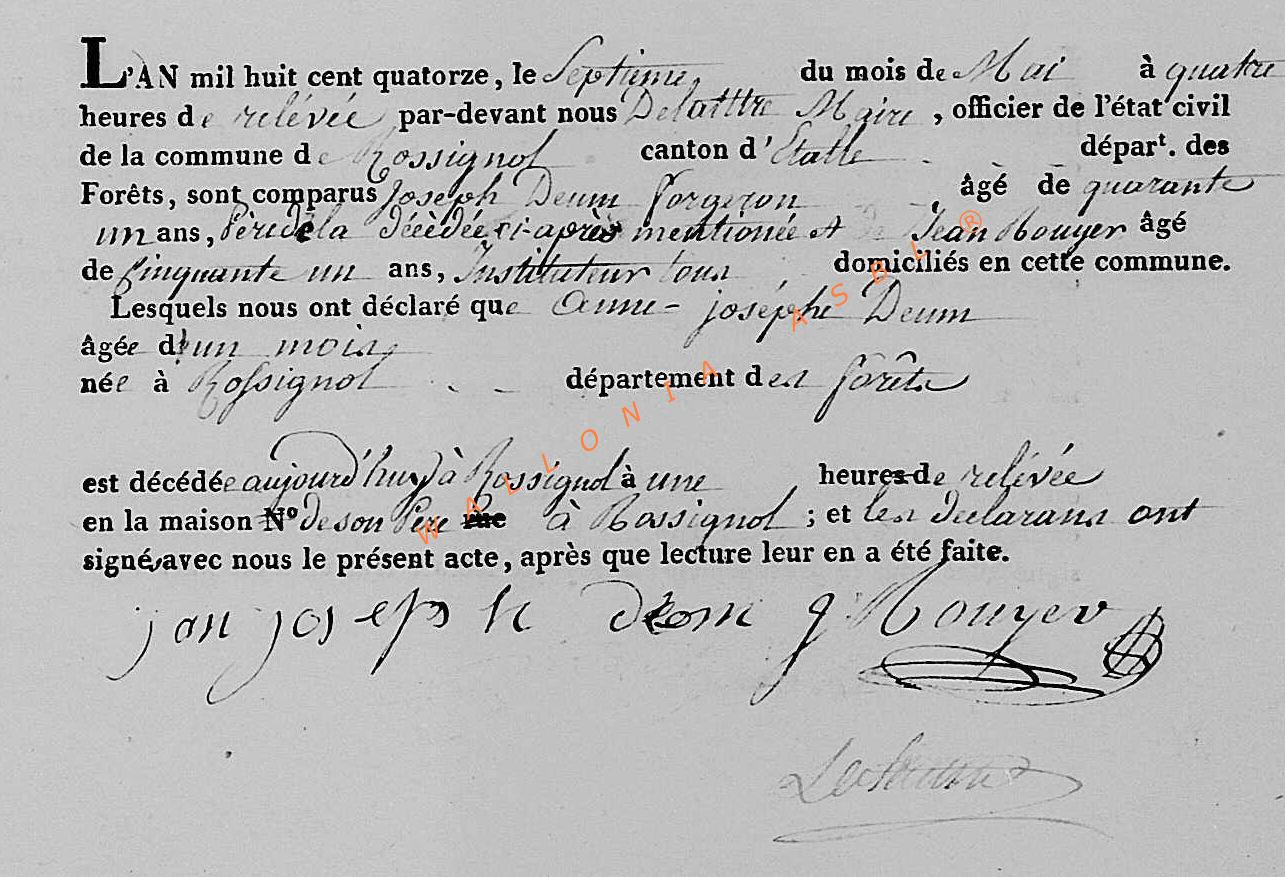 L'AN mil huit cent quatorze, le Septieme, du mois de Mai à quatre
heures de relévée par-devant nous Delattre Maire, officier de l'état civil
de la commune de Rossignol canton d'Etalle départ. des
Forêts, sont comparus Joseph Deum forgeron âgé de quarante
un ans, Père de la décèdée ci-après mentionée et Jean Rouyer âgé
de Cinquante un ans, Instituteur tous domiciliés en cette commune.
Lesquels nous ont déclaré que Anne-josèphe Deum
âgée d'un mois,
née à Rossignol département des forêts
est décédée aujourd'huy à Rossignol à une heures de relévée
en la maison N° de son Père rue à Rossignol ; et les declarans ont
signé, avec nous le présent acte, après que lecture leur en a été faite.
jan joseph deom J Rouyer
WALLONIA ASBL ®